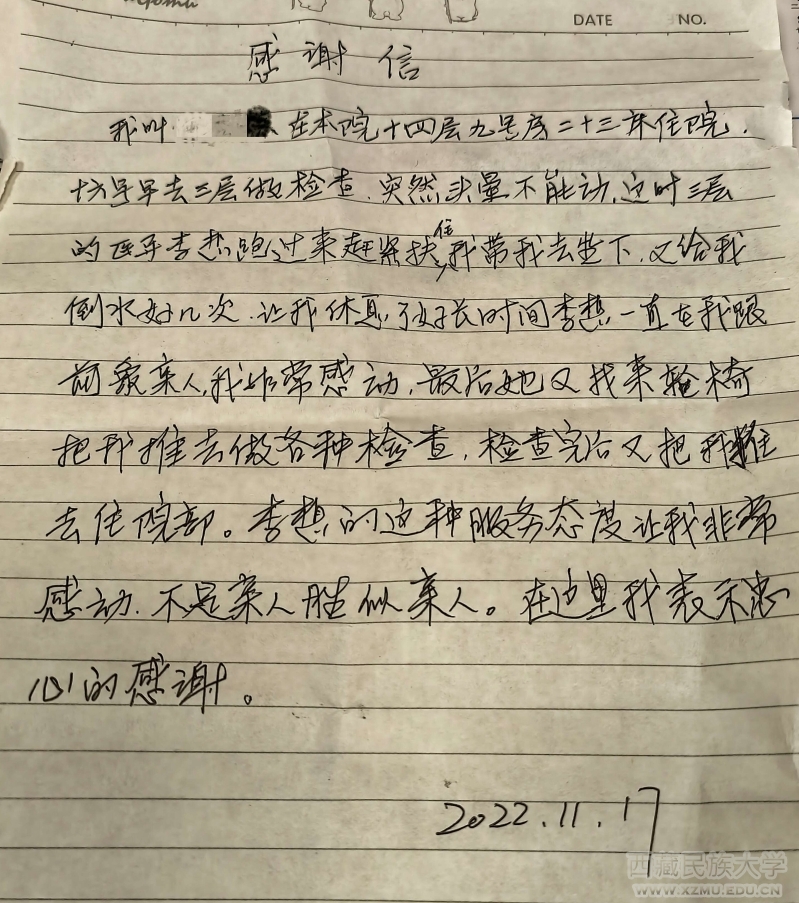 DATE NO.
感谢信
我叫 在本院十四层九号房二十三床住院.
早早去三层做检查.突然头晕不能动,这时三层
的医导李想跑过来赶紧扶住我带我去坐下.又给我
倒水好几次.让我休息了好长时间李想一直在我跟
前象亲人,我非常感动.最后她又找来轮椅
把我推去做各种检查,检查完后又把我推
去住院部。李想的这种服务态度让我非常
感动.不是亲人胜似亲人。在这里我表示忠
心的感谢。
2022.11.17
西藏民族大学
WWW.XZMU.EDU.CN